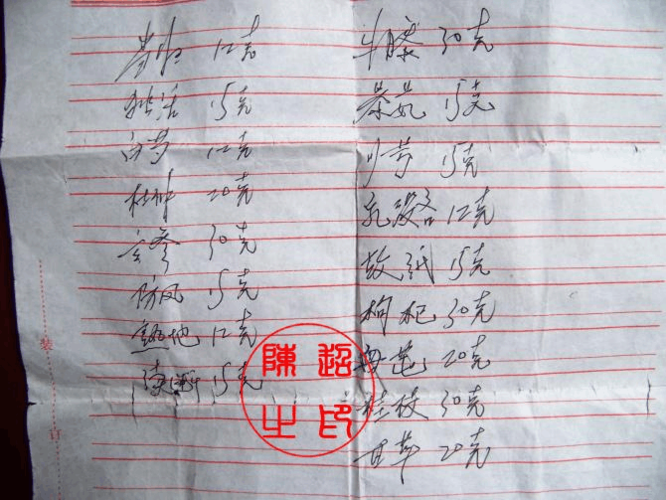 当归 12克
独活 15克
白芍 12克
杜仲 20克
玄参 30克
防风 15克
熟地 12克
续断 15克
牛膝 30克
秦艽 15克
川芎 15克
乳没各 12克
故纸 15克
枸杞 30克
20克
桂枝 30克
甘草 20克
陳超
之印
装
订